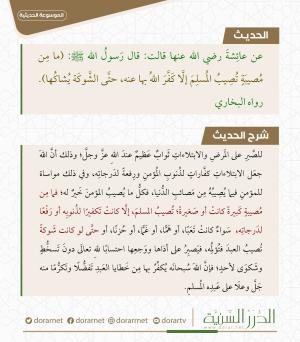 الموسوعة الحديثية
الحديث
عن عائِشةَ رضي الله عنها قالت: قال رَسولُ الله ﷺ: (ما مِن
مُصيبَةٍ تُصِيبُ المُسلِمَ إلَّا كَفَّرَ اللهُ بها عنه، حتَّى الشَّوكَةِ يُشاكُها).
رواه البخاري
شرح الحديث
للصَّبرِ على المرَضِ والابتلاءاتِ ثوابٌ عظيمٌ عندَ اللهِ عزَّ وجلَّ؛ وذلك أنَّ اللهَ
جعَل الابتلاءاتِ كفَّاراتٍ لذُنوبِ المؤمنِ ورِفعةً لدَرجاتِه، وفي ذلك مواساة
للمؤمنِ فيما يُصيبُه مِن مَصائبِ الدُّنيا، فكلُّ ما يُصيبُ المؤمنَ خيرٌ له؛ فما مِن
مُصيبةٍ كبيرةً كانتْ أو صغيرةً؛ تُصيبُ المسلمَ، إلَّا كانتْ تكفيرًا لذُنوبِه أو رَفْعًا
لدَرجاتِه، سَواءٌ كانتْ تَعَبًا، أو همًّا، أو غَمًّا، أو حُزنًا، أو حتَّى لو كانت شَوكةً
تُصيبُ العبدَ فتُؤلِمُه، فيَصبِرُ على أذاها ووَجعِها احتسابًا لله تعالَى دونَ تَسخُّطٍ
وشَكوَى لأحدٍ؛ فإنَّ اللهَ سُبحانَه يُكفِّرُ بها مِن خطايا العَبدِ تَفضُّلًا وتَكرُّمًا منه
جَلَّ وعلَا على عَبدِه المُسلمِ.
dorarnet dorarrnet dorartv
الدرر السنية
www.dorar.net